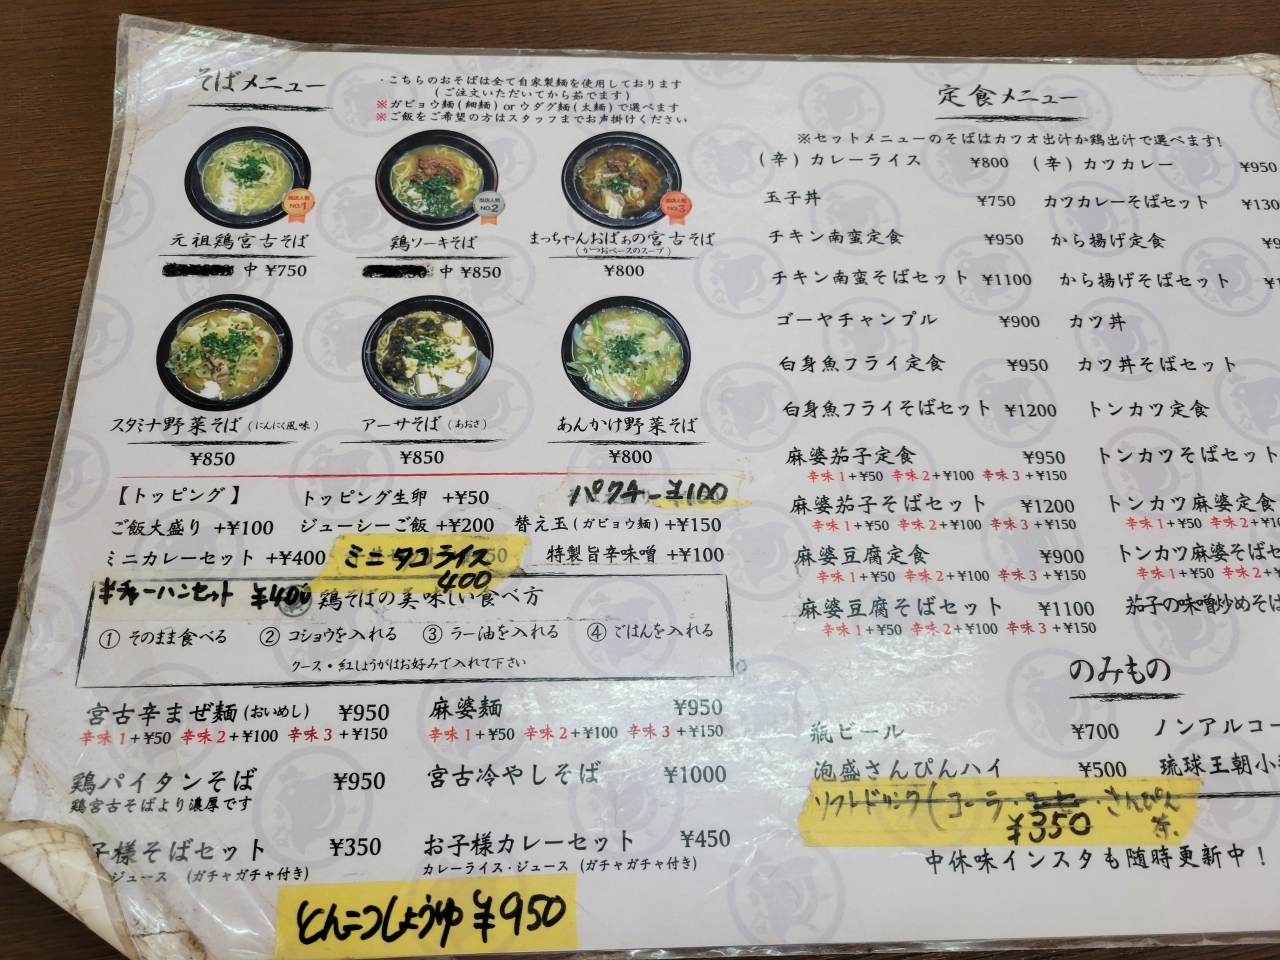 そばメニュー
・こちらのおそばは全て自家製麺を使用しております
(ご注文いただいてから茹でます)
※ガビョウ麺(細麺) or ウダグ麺(太麺)で選べます
※ご飯をご希望の方はスタッフまでお声掛けください
当店人気 NO.1
当店人気 NO.2
当店人気 NO.3
元祖鶏宮古そば
中 ¥750
鶏ソーキそば
中 ¥850
まっちゃんおばぁの宮古そば
(かつおベースのスープ)
¥800
スタミナ野菜そば (にんにく風味)
¥850
アーサそば (あおさ)
¥850
あんかけ野菜そば
¥800
【トッピング】 トッピング生卵 +¥50 パクチー ¥100
ご飯大盛り +¥100 ジューシーご飯 +¥200 替え玉(ガビョウ麺) +¥150
ミニカレーセット +¥400 ミニタコライス 400 特製旨辛味噌 +¥100
半チャーハンセット ¥400
鶏そばの美味しい食べ方
① そのまま食べる ② コショウを入れる ③ ラー油を入れる ④ ごはんを入れる
クース・紅しょうがはお好みで入れて下さい
宮古辛まぜ麺(おいめし) ¥950
辛味1+¥50 辛味2+¥100 辛味3+¥150
麻婆麺 ¥950
辛味1+¥50 辛味2+¥100 辛味3+¥150
鶏パイタンそば ¥950
鶏宮古そばより濃厚です
宮古冷やしそば ¥1000
子様そばセット ¥350
ジュース (ガチャガチャ付き)
お子様カレーセット ¥450
カレーライス・ジュース (ガチャガチャ付き)
とんこつしょうゆ ¥950
定食メニュー
※セットメニューのそばはカツオ出汁か鶏出汁で選べます!
(辛)カレーライス ¥800
玉子丼 ¥750
チキン南蛮定食 ¥950
チキン南蛮そばセット ¥1100
ゴーヤチャンプル ¥900
白身魚フライ定食 ¥950
白身魚フライそばセット ¥1200
麻婆茄子定食 ¥950
辛味1+¥50 辛味2+¥100 辛味3+¥150
麻婆茄子そばセット ¥1200
辛味1+¥50 辛味2+¥100 辛味3+¥150
麻婆豆腐定食 ¥900
辛味1+¥50 辛味2+¥100 辛味3+¥150
麻婆豆腐そばセット ¥1100
辛味1+¥50 辛味2+¥100 辛味3+¥150
(辛)カツカレー ¥950
カツカレーそばセット ¥130
から揚げ定食 ¥9
から揚げそばセット ¥1
カツ丼
カツ丼そばセット
トンカツ定食
トンカツそばセット
トンカツ麻婆定食
辛味1+¥50 辛味2+¥10
トンカツ麻婆そばセ
辛味1+¥50 辛味2+¥
茄子の味噌炒めそば
のみもの
瓶ビール ¥700
ノンアルコー
泡盛さんぴんハイ ¥500
琉球王朝小
ソフトドリンク(コーラ・さんぴん茶.
¥350
中休味インスタも随時更新中!